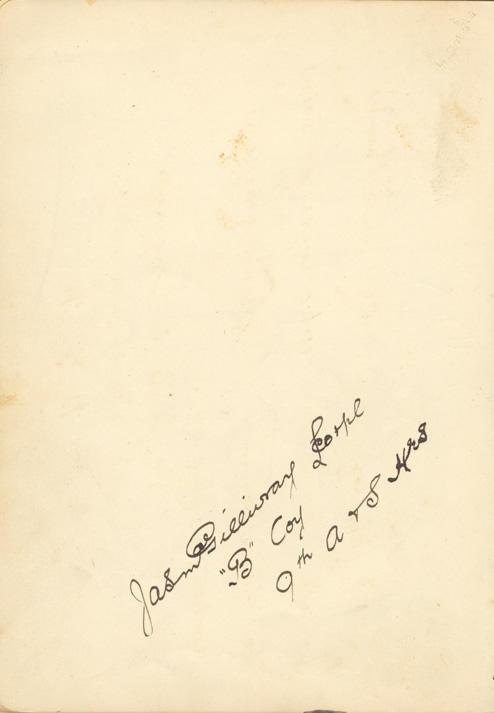 Jas McGillivray L Corpl
"B" Coy
9th A & S Hrs